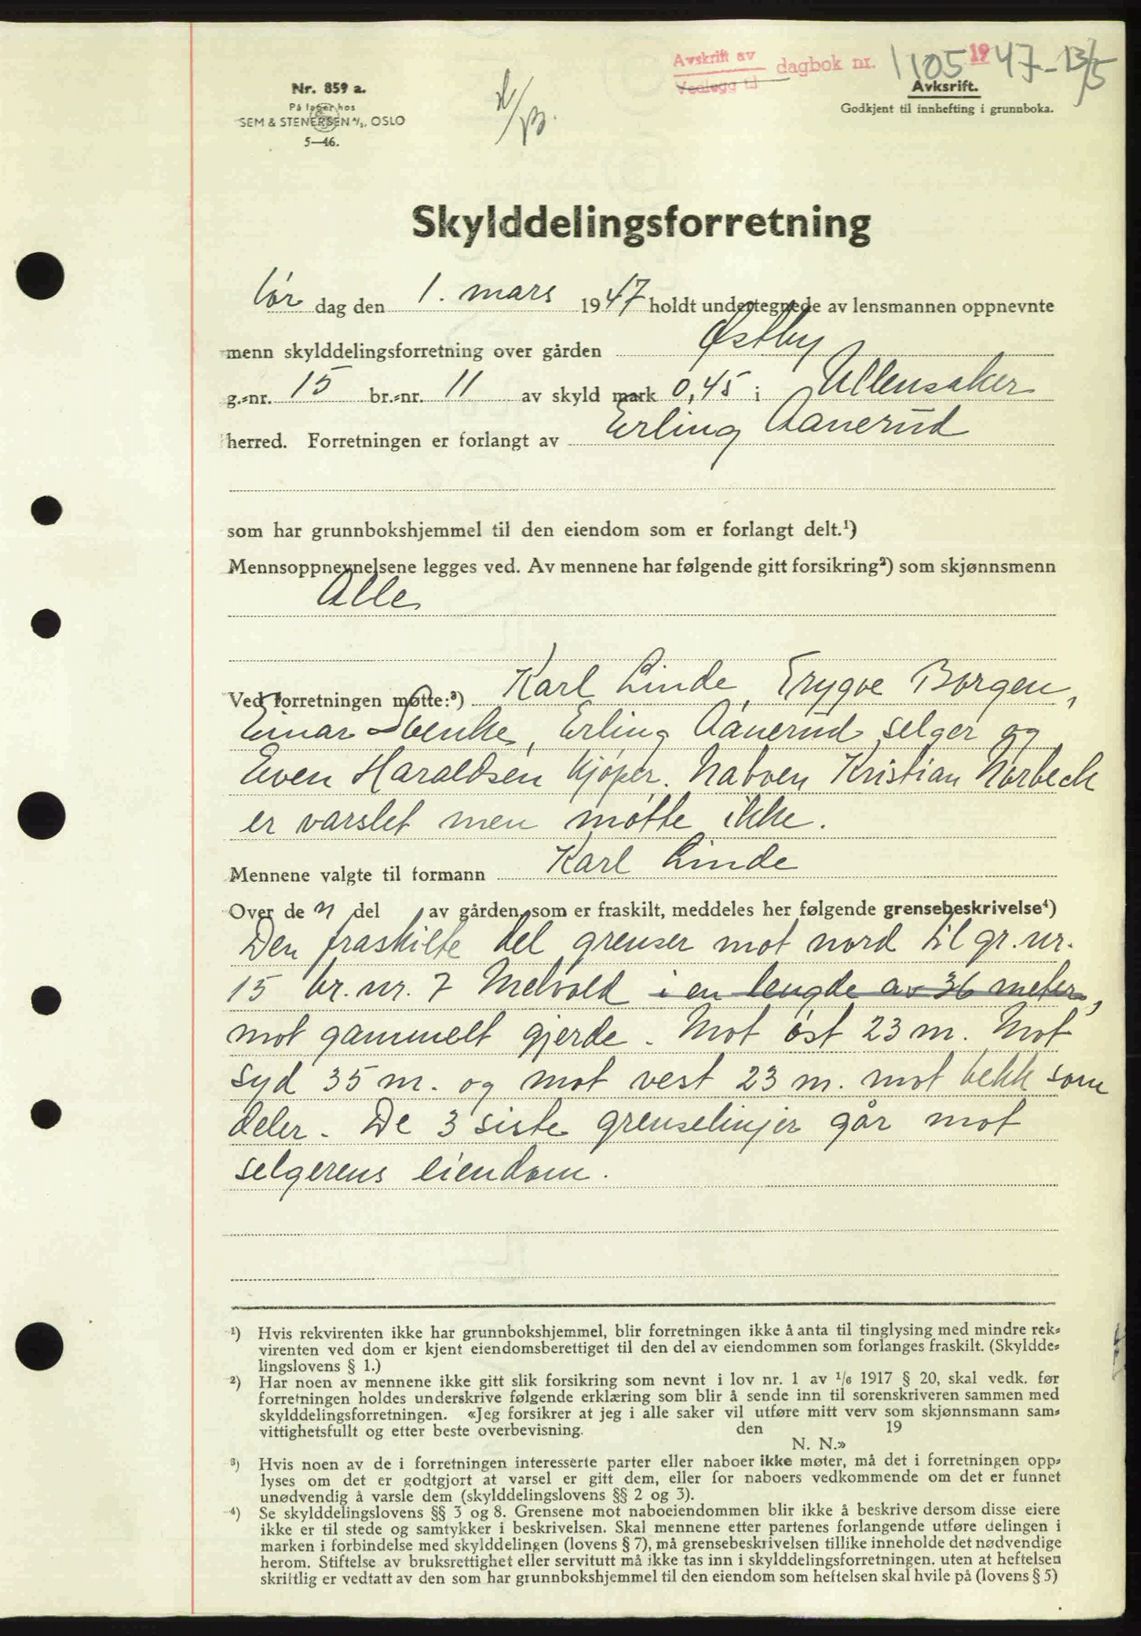 Avskrift av
Vedlegg til
dagbok nr. 1105 1947-13/5
Nr. 859 a.
På lager hos
SEM & STENERSEN A/S, OSLO
5—46.
Avksrift.
Godkjent til innhefting i grunnboka.
Skylddelingsforretning
lør dag den 1. mars 1947 holdt undertegnede av lensmannen oppnevnte
menn skylddelingsforretning over gården Østby
g.-nr. 15 br.-nr. 11 av skyld mark 0,45 i Ullensaker
herred. Forretningen er forlangt av Erling Aanerud
som har grunnbokshjemmel til den eiendom som er forlangt delt.¹)
Mennsoppnevnelsene legges ved. Av mennene har følgende gitt forsikring²) som skjønnsmenn
Alle
Ved forretningen møtte:³) Karl Linde, Trygve Borgen,
Einar Svenke, Erling Aanerud selger og
Even Haraldsen kjøper. Naboen Kristian Norbeck
er varslet men møtte ikke.
Mennene valgte til formann Karl Linde
Over den del av gården, som er fraskilt, meddeles her følgende grensebeskrivelse⁴)
Den fraskilte del grenser mot nord til gr. nr.
15 br. nr. 7 Melvold i en lengde av 36 meter,
mot gammelt gjerde. Mot øst 23 m. Mot
syd 35 m. og mot vest 23 m. mot bekk som
deler. De 3 siste grenselinjer går mot
selgerens eiendom.
¹) Hvis rekvirenten ikke har grunnbokshjemmel, blir forretningen ikke å anta til tinglysing med mindre rek-
virenten ved dom er kjent eiendomsberettiget til den del av eiendommen som forlanges fraskilt. (Skyldde-
lingslovens § 1.)
²) Har noen av mennene ikke gitt slik forsikring som nevnt i lov nr. 1 av 1/6 1917 § 20, skal vedk. før
forretningen holdes underskrive følgende erklæring som blir å sende inn til sorenskriveren sammen med
skylddelingsforretningen. «Jeg forsikrer at jeg i alle saker vil utføre mitt verv som skjønnsmann sam-
vittighetsfullt og etter beste overbevisning. den 19
N. N.»
³) Hvis noen av de i forretningen interesserte parter eller naboer ikke møter, må det i forretningen opp-
lyses om det er godtgjort at varsel er gitt dem, eller for naboers vedkommende om det er funnet
unødvendig å varsle dem (skylddelingslovens §§ 2 og 3).
⁴) Se skylddelingslovens §§ 3 og 8. Grensene mot naboeiendommen blir ikke å beskrive dersom disse eiere
ikke er til stede og samtykker i beskrivelsen. Skal mennene etter partenes forlangende utføre delingen i
marken i forbindelse med skylddelingen (lovens § 7), må grensebeskrivelsen tillike inneholde det nødvendige
herom. Stiftelse av bruksrettighet eller servitutt må ikke tas inn i skylddelingsforretningen, uten at heftelsen
skriftlig er vedtatt av den som har grunnbokshjemmel til den eiendom som heftelsen skal hvile på (lovens § 5)